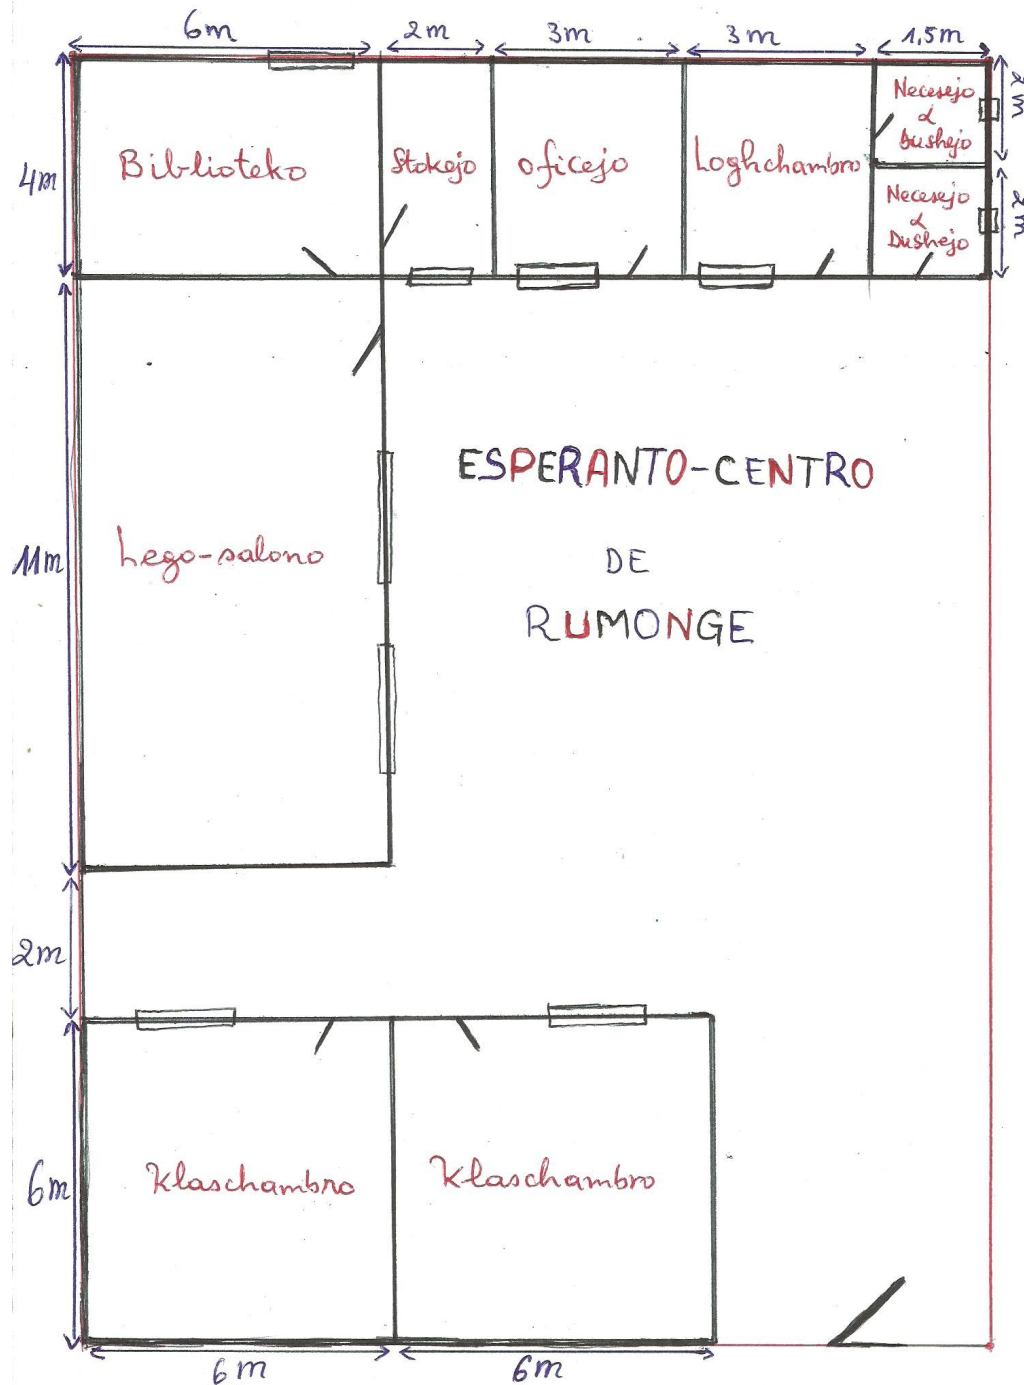 6m
2m
3m
3m
1,5m
4m
Biblioteko
Stokejo
oficejo
Loghchambro
Necesejo
&
Dushejo
2m
Necesejo
&
Dushejo
2m
11m
Lego-salono
ESPERANTO-CENTRO
DE
RUMONGE
2m
6m
Klaschambro
Klaschambro
6m
6m